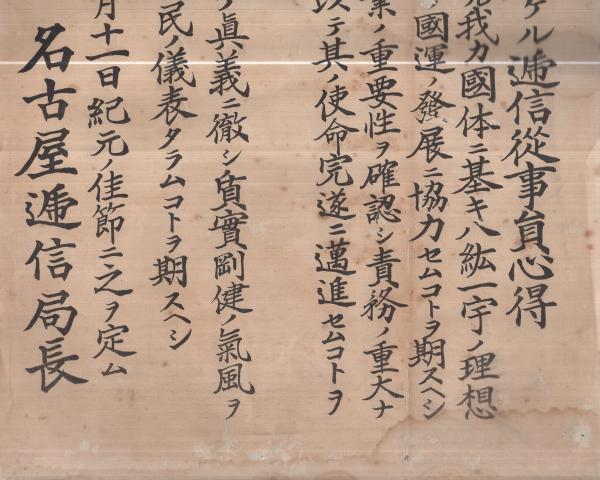 ケル遞信從事員心得
我カ國体ニ基キ八紘一宇ノ理想
國運ノ發展ニ協力セムコトヲ期スヘシ
業ノ重要性ヲ確認シ責務ノ重大ナ
以テ其ノ使命完遂ニ邁進セムコトヲ
ノ眞義ニ徹シ質實剛健ノ氣風ヲ
民ノ儀表タラムコトヲ期スヘシ
月十一日紀元ノ佳節ニ之ヲ定ム
名古屋遞信局長